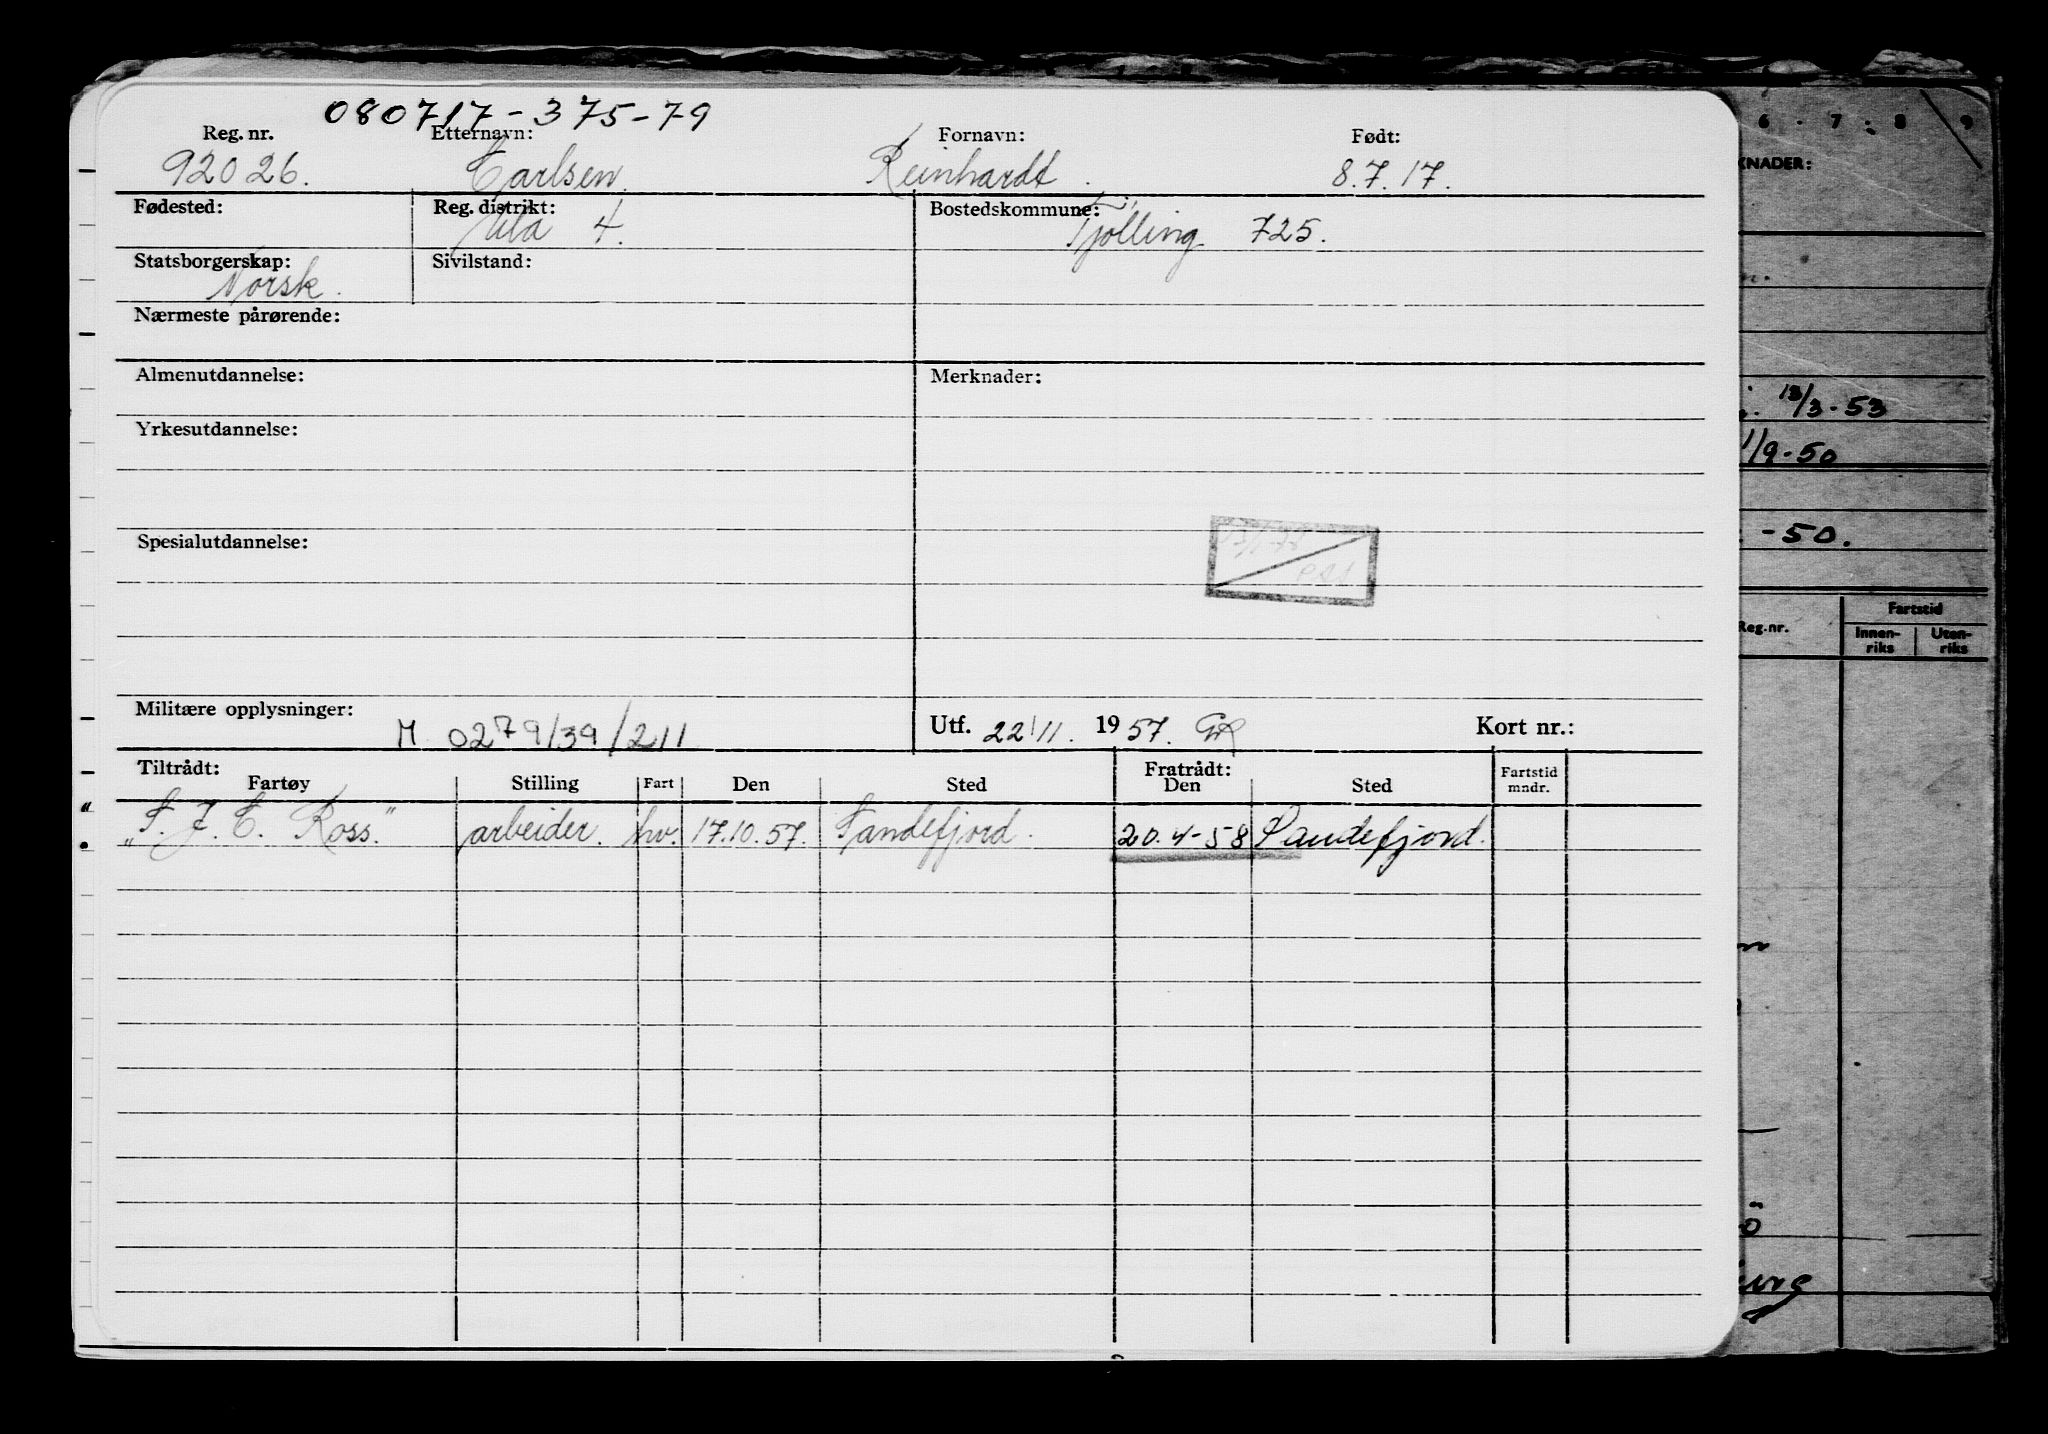 080717-375-79
Reg. nr. Etternavn: Fornavn: Født:
92026. Carlsen. Reinhardt. 8.7.17.
Fødested: Reg. distrikt: Bostedskommune:
Ula 4. Tjølling 725.
Statsborgerskap: Sivilstand:
Norsk.
Nærmeste pårørende:
Almenutdannelse: Merknader:
Yrkesutdannelse:
Spesialutdannelse:
Militære opplysninger: M 0279/39/211
Utf. 22/11. 1957. Kort nr.:
Tiltrådt: Fratrådt: Fartstid
Fartøy Stilling Fart Den Sted Den Sted mndr.
"S. J. C. Ross." arbeider. hv. 17.10.57. Sandefjord. 20.4-58 Sandefjord.
6 . 7 . 8 9
KNADER:
13/3-53
1/9-50
-50.
Reg.nr. Fartstid
Innen-riks Uten-riks